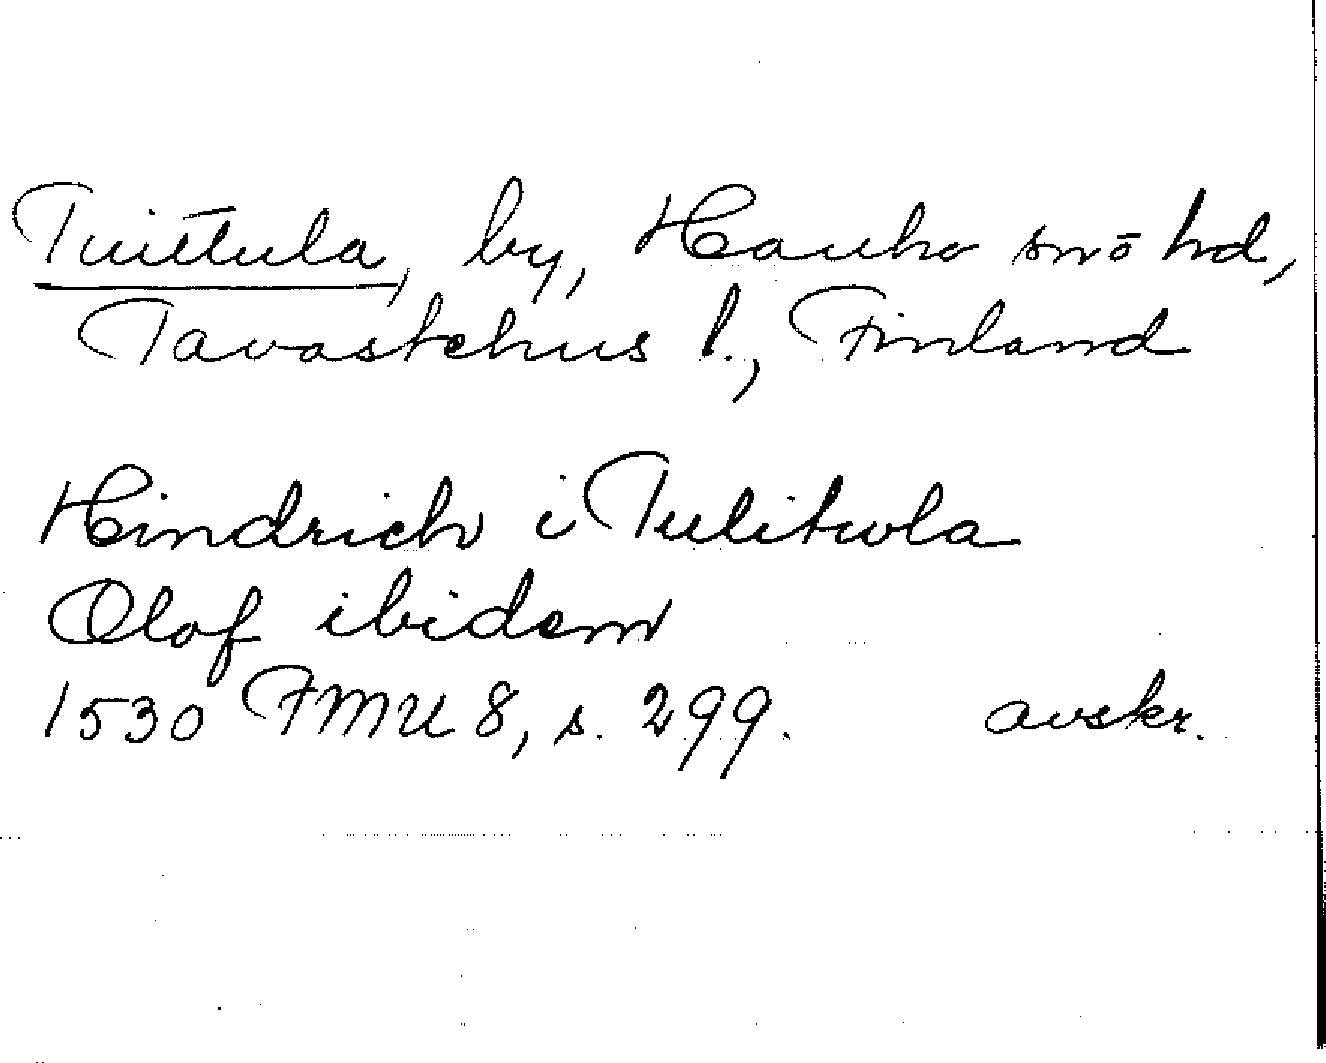 Tuittula, by, Hauho snō hd,
Tavastehus l., Finland
Hindrich i Tulitula
Olof ibidem
1530 FMU 8, s. 299. avskr.